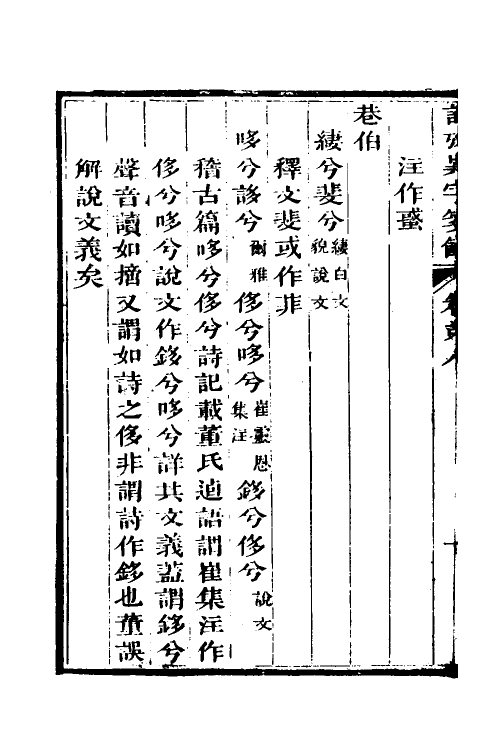 詩攷異字箋餘 卷第八
注作
巷伯
緀兮斐兮 緀白文貌說文
釋文斐或作非
哆兮誃兮 爾雅 侈兮哆兮 崔靈恩集注 鉹兮侈兮 說文
稽古篇哆兮侈兮詩記載董氏逌語謂崔集注作
侈兮哆兮說文作鉹兮哆兮詳其文義葢謂鉹兮
聲音讀如摛又謂如詩之侈非謂詩作鉹也董誤
解說文義矣